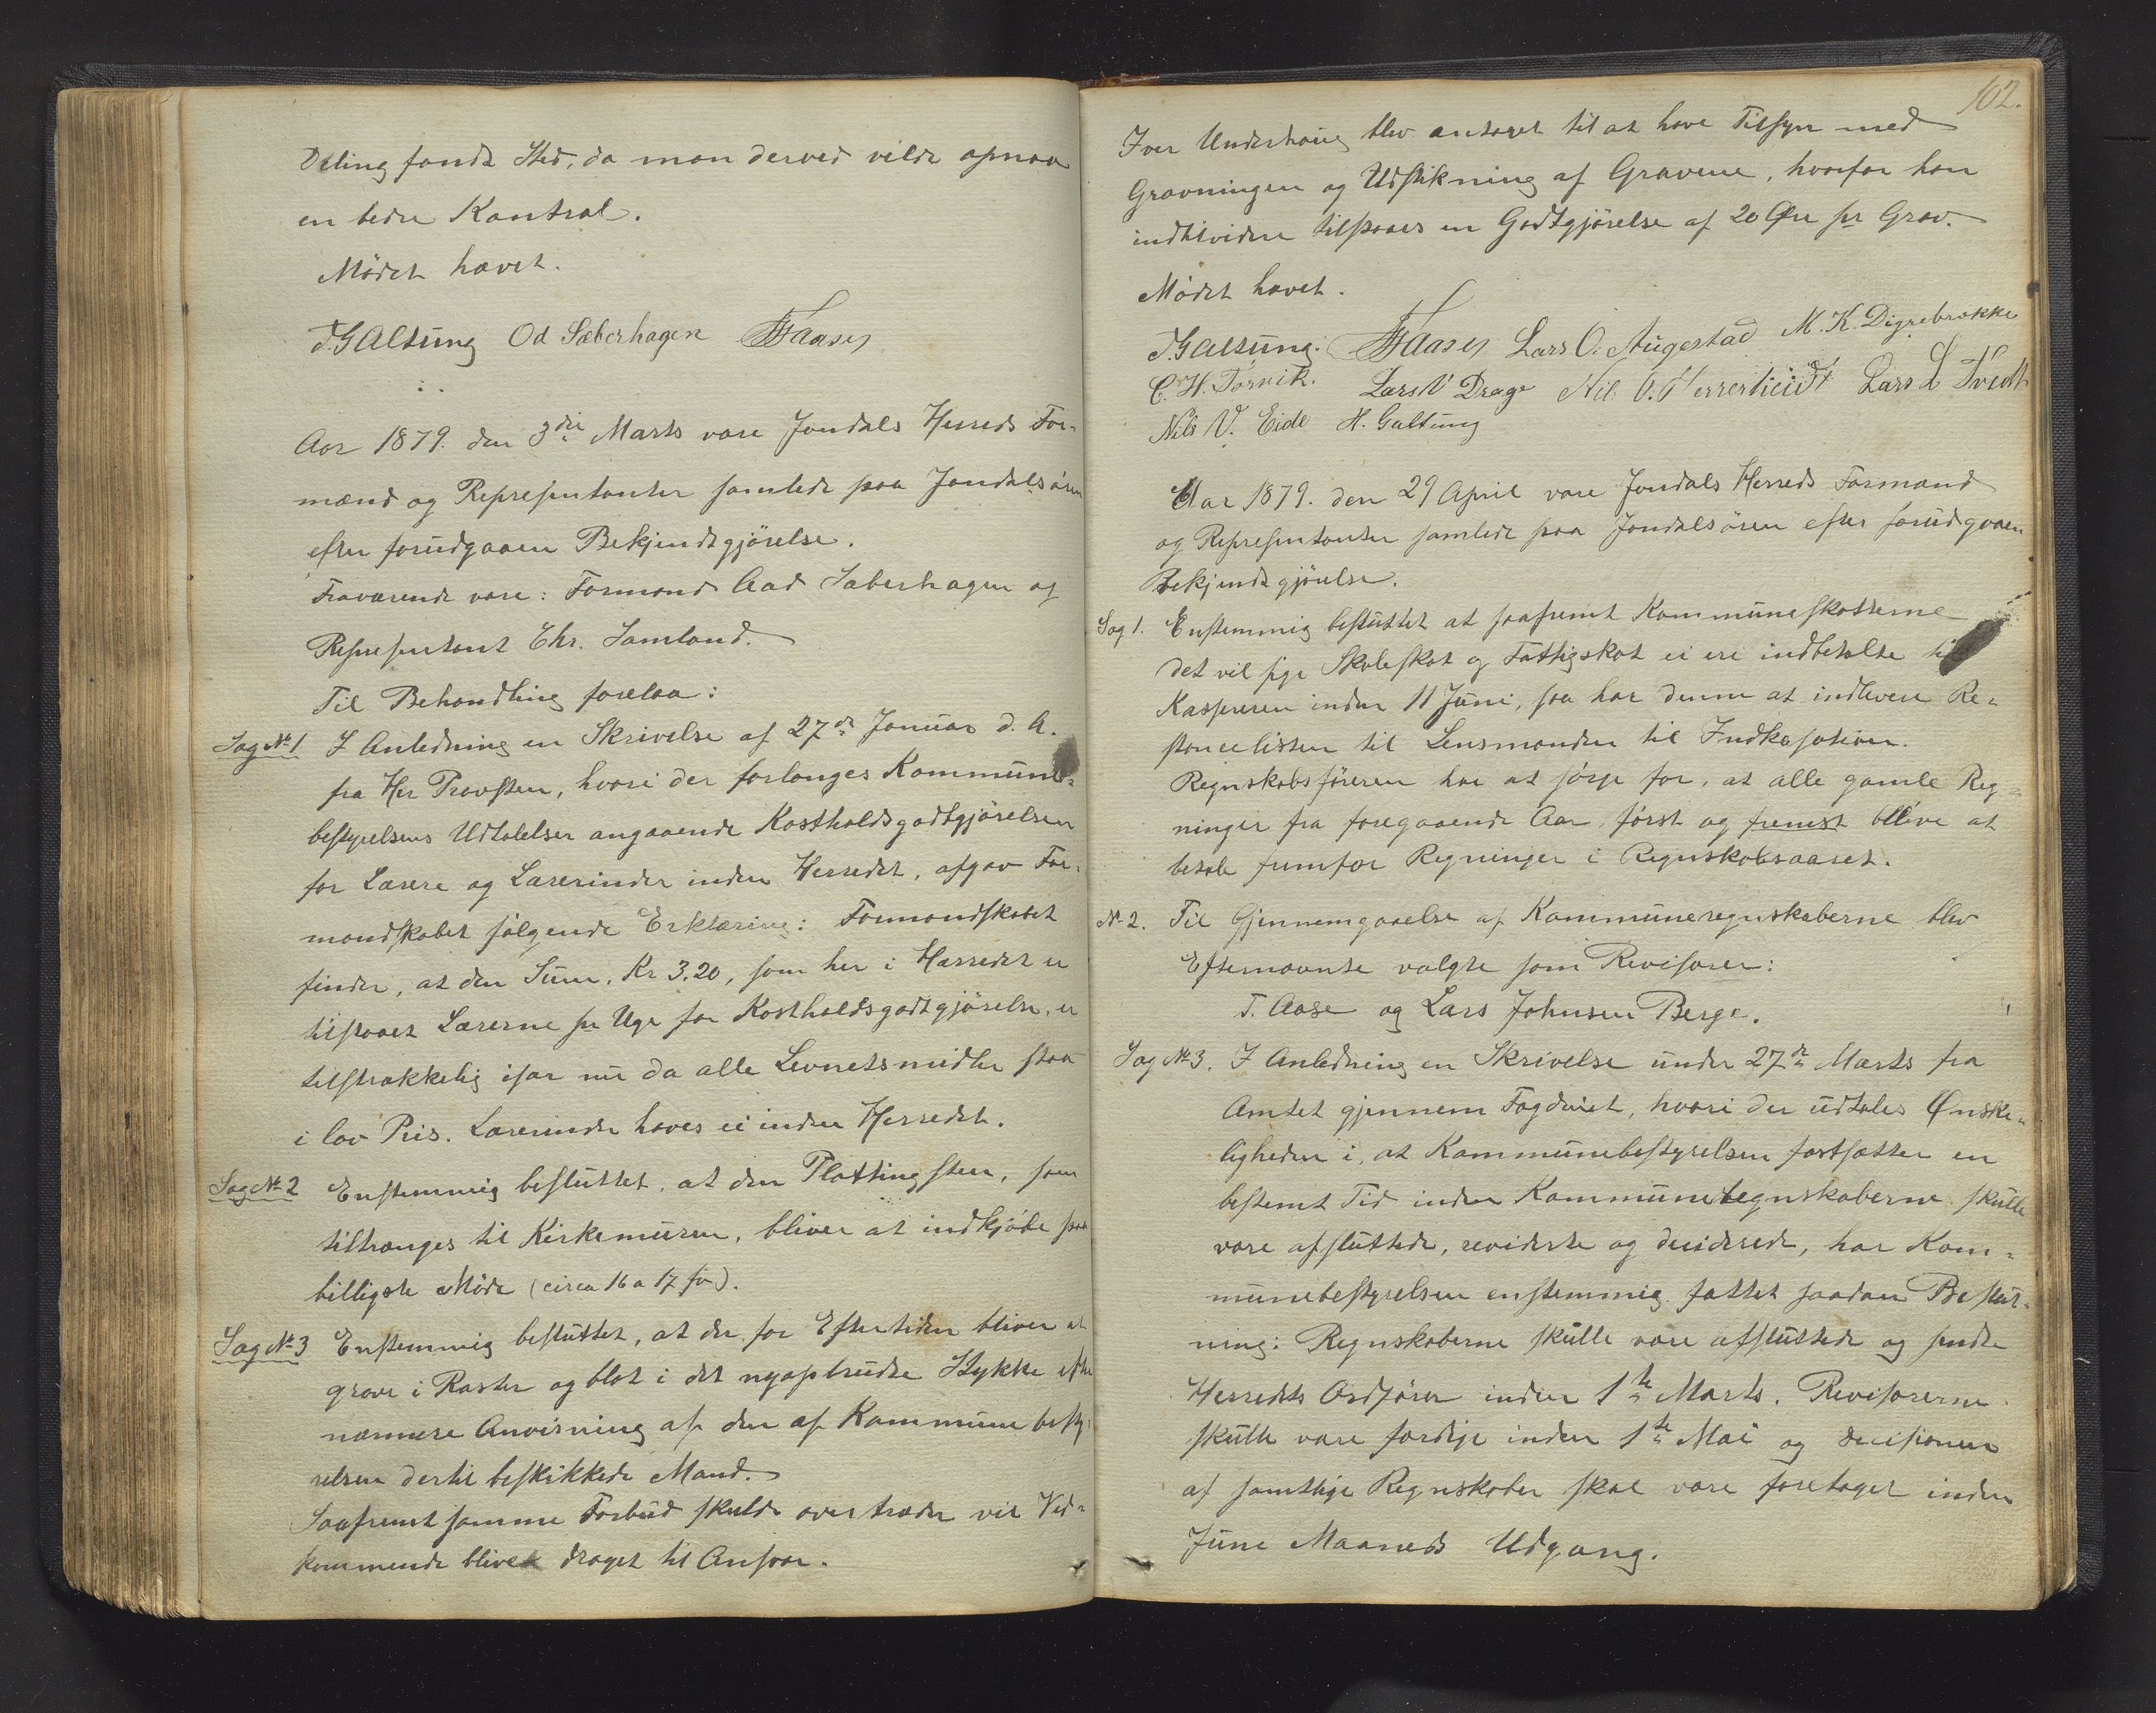 Deling fandt Sted, da man derved vilde opnaa
en bedre Kontrol.
Mødet hævet.
J. Galtung Od Sæberhagen T Aase
Aar 1879. den 3die Marts vare Jondals Herreds For-
mænd og Repræsentanter samlede paa Jondalsøren
efter forudgaaen Bekjendtgjörelse.
Fraværende vare: Formand Aad Saberhagen og
Repræsentant Chr. Samland.
Til Behandling forelaa:
Sag No 1 I Anledning en Skrivelse af 27de Januar d. A.
fra Her Provsten, hvori der forlanges Kommune-
bestyrelsens Udtalelser angaaende Kostholdsgodtgjörelsen
for Lærere og Lærerinder inden Herredet, afgav For-
mandskabet følgende Erklæring: Formandskabet
finder, at den Sum, Kr 3.20, som her i Herredet er
tilstaaet Lærerne pr Uge for Kostholdsgodtgjörelse, er
tilstrækkelig især nu da alle Levnetsmidler staa
i lav Pris. Lærerinder haves ei inden Herredet.
Sag No 2 Enstemmig besluttet, at den Plattingsten, som
tiltrænges til Kirkemuren, bliver at indkjøbe paa
billigste Måde (circa 16 a 17 fv).
Sag No 3 Enstemmig besluttet, at der for Eftertiden bliver at
grave i Raster og blot i det nyopbrudte Stykke efter
nærmere Anvisning af den af Kommunebesty-
relsen dertil beskikkede Mand.
Saafremt samme Forbud skulde overtræder vil Ved-
kommende blive draget til Ansvar.
102.
Iver Underhaug blev antaget til at have Tilsyn med
Gravningen og Udstikning af Gravene, hvorfor han
indtilvidere tilstaaes en Godtgjörelse af 20 Øre pr Grav.
Mødet hævet.
J. Galtung. T Aase Lars O. Augestad M. K. Digrebrække
C. H. Torvik. Lars N Drage Nils Lars L Tvedt
Nils V. Eide H. Galtung
Aar 1879. den 29 April vare Jondals Herreds Formænd
og Repræsentanter samlede paa Jondalsören efter forudgaaen
Bekjendtgjörelse.
Sag 1. Enstemmig besluttet at saafremt Kommuneskatterne
det vil sige Skoleskat og Fattigskat ei ere indbetalte til
Kassereren inden 11 Juni, saa har denne at indlevere Re-
stancelisten til Lensmanden til Indkasation.
Regnskabsføreren har at sörge for, at alle gamle Reg-
ninger fra foregaaende Aar, först og fremst blive at
betale fremfor Regninger i Regnskabsaaret.
No 2. Til Gjennemgaaelse af Kommuneregnskaberne blev
Efternævnte valgte som Revisorer:
T. Aase og Lars Johnsen Berge.
Sag No 3. I Anledning en Skrivelse under 27de Marts fra
Amtet gjennem Fogderiet, hvori der udtales Ønske-
ligheden i, at Kommunebestyrelsen fastsætter en
bestemt Tid inden Kommuneregnskaberne skulle
være afsluttede, reviderte og deciderede, har Kom-
munebestyrelsen enstemmig fattet saadan Beslut-
ning: Regnskaberne skulle være afsluttede og sendte
Herredets Ordfører inden 1te Marts. Revisorerne
skulle være færdige inden 1te Mai og decisionen
af samtlige Regnskaber skal være foretaget inden
Juni Maaneds Udgang.